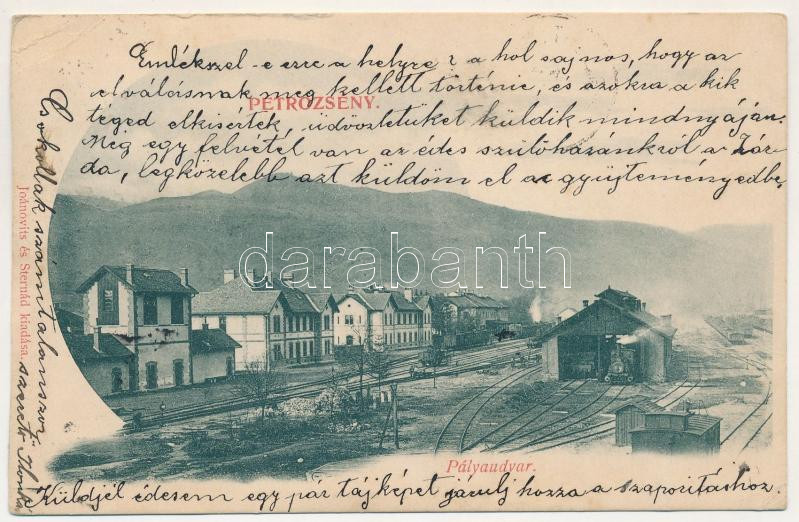 Emlékszel-e erre a helyre? a hol sajnos, hogy az
elválásnak meg kellett történie, és azokra a kik
téged elkisértek, üdvözletüket küldik mindnyáján.
Még egy felvétel van az édes szülőházánkról a Zár-
da, legközelebb azt küldöm el a gyüjteményedbe,
PETROZSÉNY.
Csókollak számtalanszor
szerető Ilonka
Joánovits és Sternád kiadása.
darabanth
Pályaudvar.
Küldjél édesem egy pár tájképet járulj hozza a szaporitáshoz.